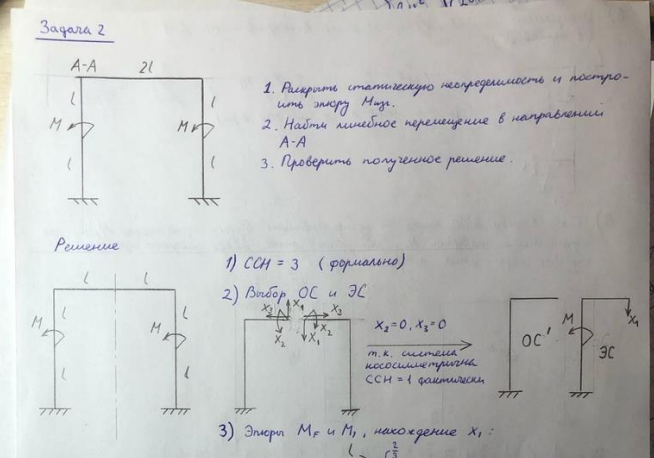 Задача 2
A-A 2l
l l
M M
l l
1. Раскрыть статическую неопределимость и постро-
ить эпюру Mизг.
2. Найти линейное перемещение в направлении
A-A
3. Проверить полученное решение.
Решение
l l
l l
M M
l l
1) ССН = 3 (формально)
2) Выбор ОС и ЭС
X3 X3
X2 X1 X2
X2=0, X3=0
т.к. система
кососимметрична
ССН = 1 фактически
ОС'
M X1
ЭС
3) Эпюры MF и M1, нахождение X1: